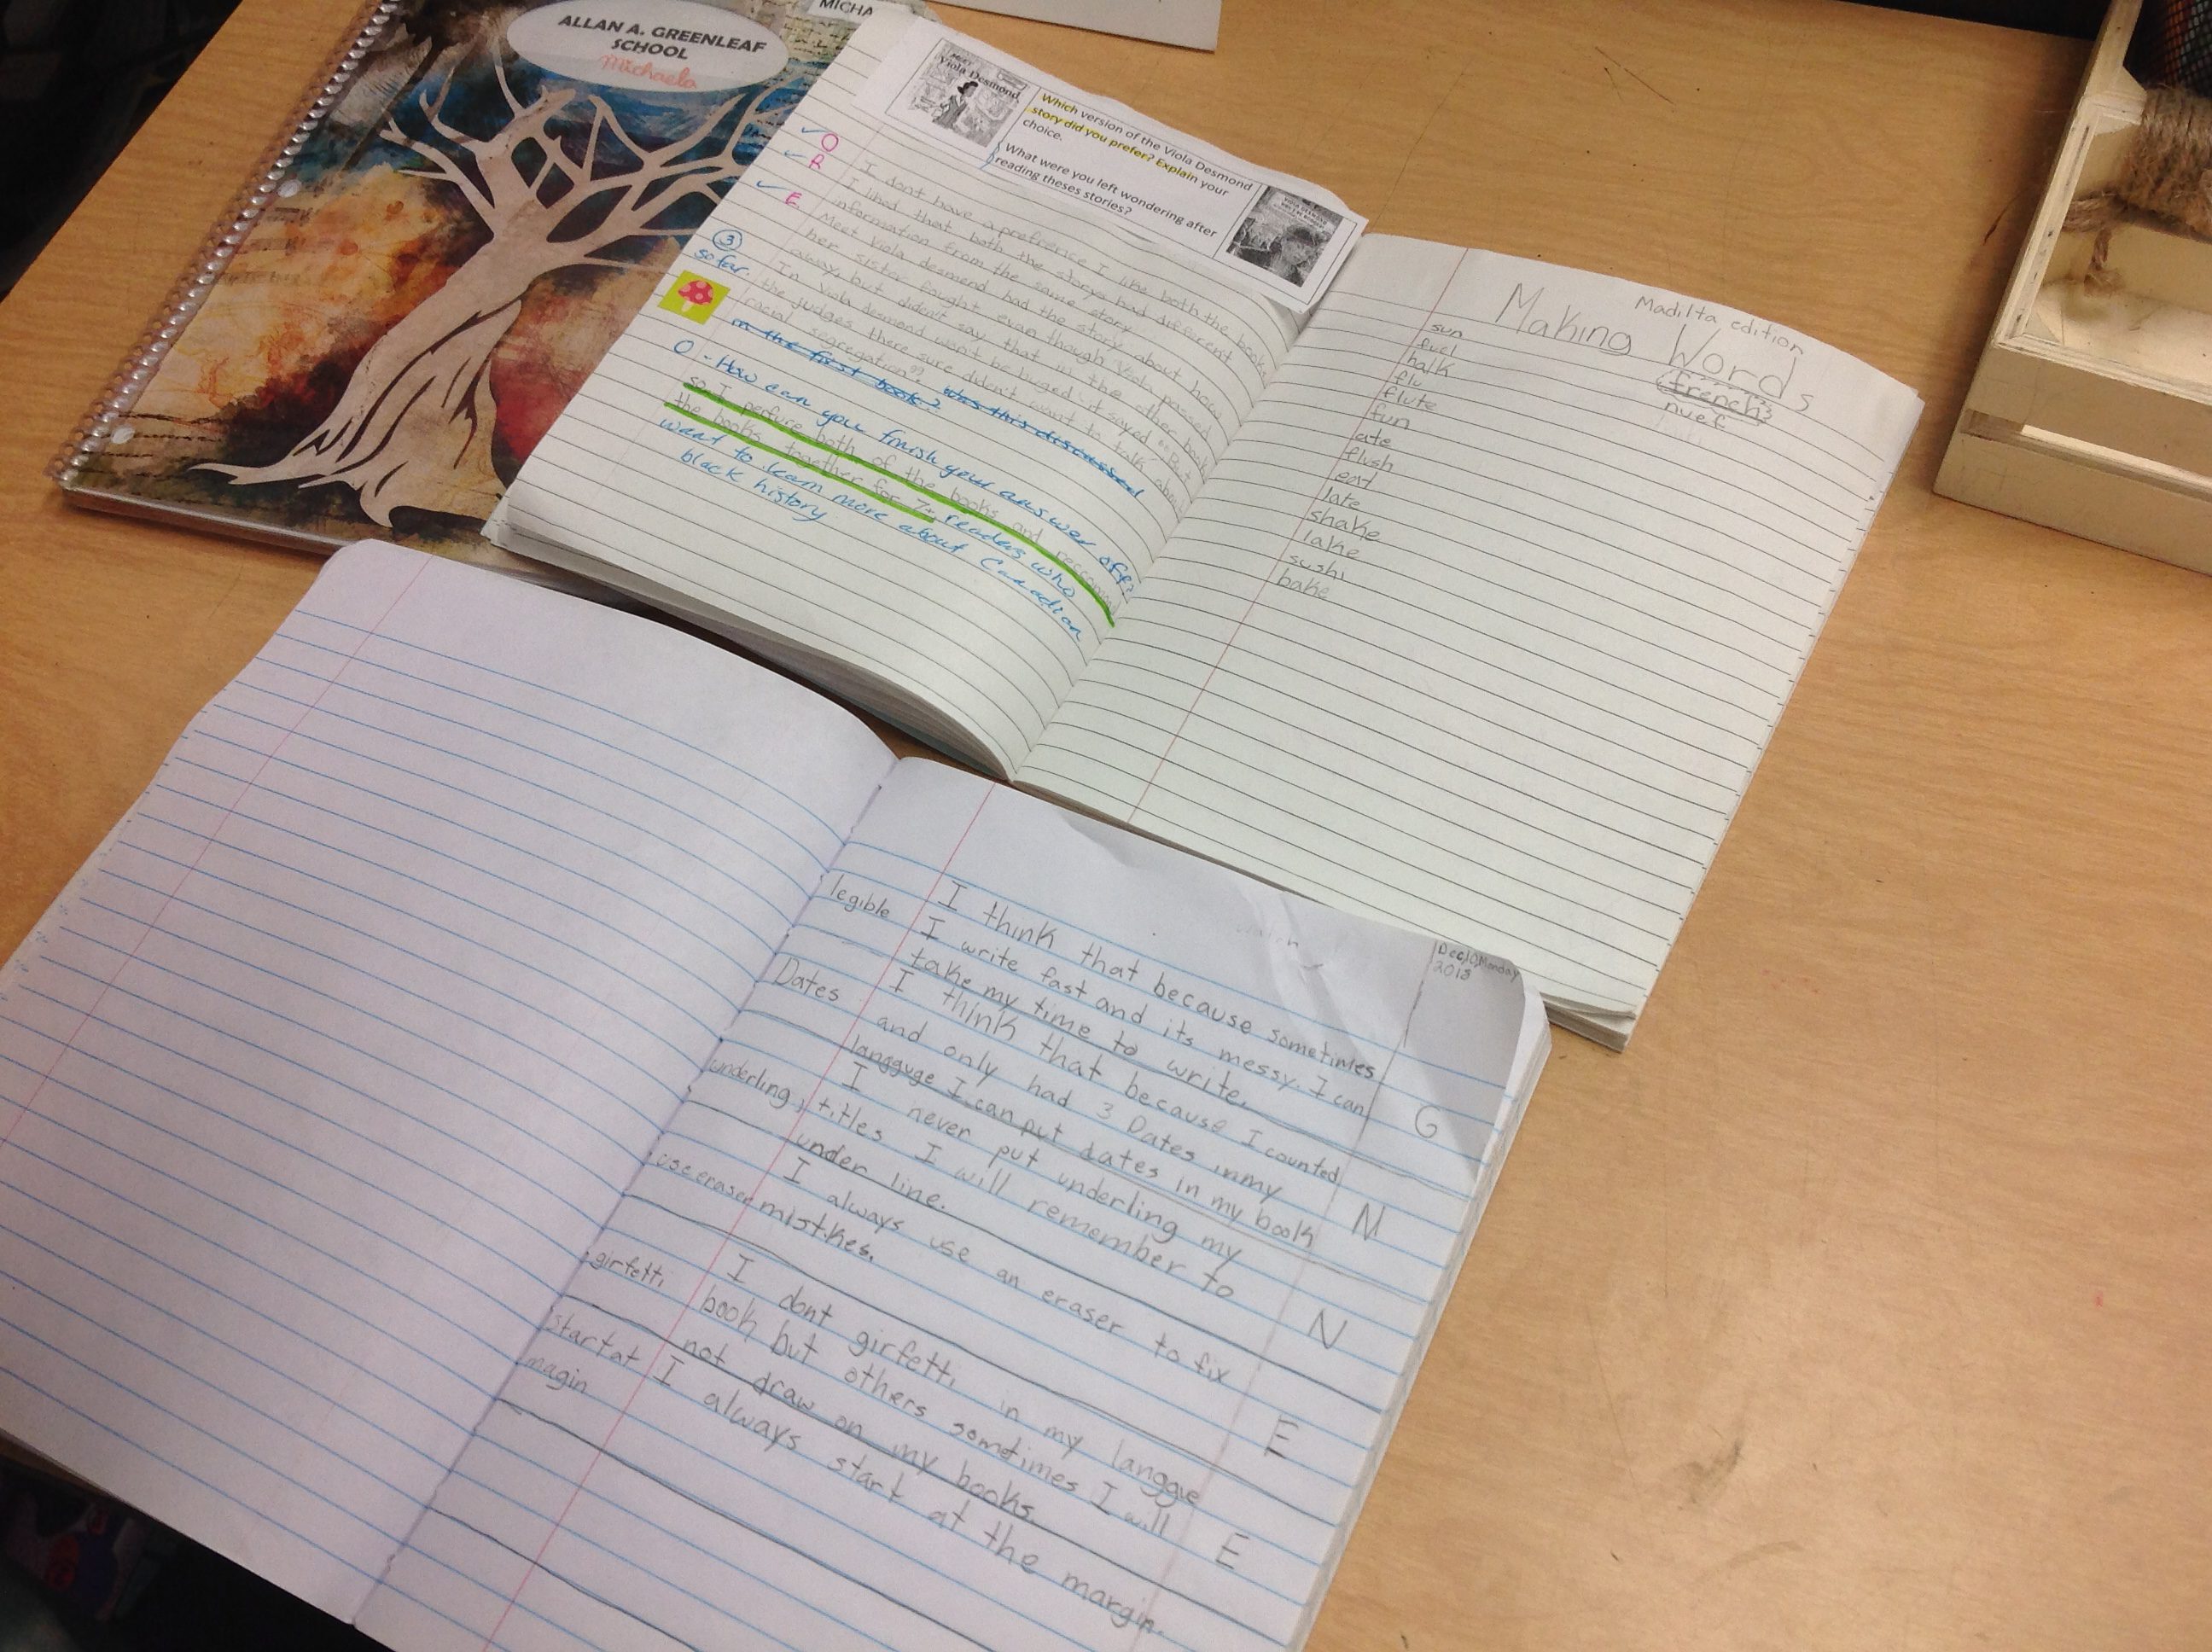 ALLAN A. GREENLEAF
SCHOOL
Michaela
MICHA
MEET
Viola Desmond
Which version of the Viola Desmond
story did you prefer? Explain your
choice.
What were you left wondering after
reading theses stories?
O
R
E
3
so far
I dont have a prefrence I like both the books
I liked that both the storys had different
information from the same story.
Meet Viola desmend had the story about how
her sister fought even though Viola passed
away, but didn't say that in the other book
In Viola desmond won't be buged it sayed "But
the judges there sure didn't want to talk about
racial segregation"
in the first book? Was this discussed
O - How can you finish your answer off?
so I perfure both of the books and reccomend
the books together for 7+ readers who
want to learn more about Canadian
black history
Making Words
Madilta edition
french
nuef
sun
fuel
halk
flu
flute
fun
ate
flush
eat
late
shake
lake
sushi
bake
Dec,10,Monday
2018
legible I think that because sometimes
I write fast and its messy. I can
take my time to write. G
Dates I think that because I counted
and only had 3 Dates inmy
langguge I can put dates in my book N
underling I never put underling my
titles I will remember to
under line. N
use eraser I always use an eraser to fix
mistkes. E
girfetti I dont girfetti in my langgue
book but others sometimes I will
not draw on my books. E
start at I always start at the margin.
magin